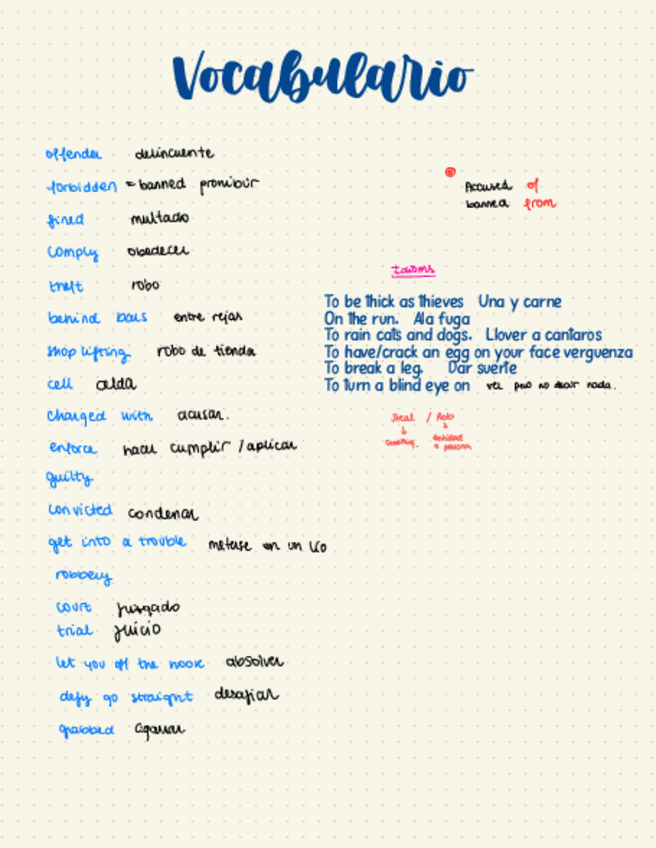 Vocabulario
offender delincuente
forbidden = banned prohibir
fined multado
comply obedecer
theft robo
behind bars entre rejas
shop lifting robo de tienda
cell celda
charged with acusar.
enforce hacer cumplir / aplicar
guilty
convicted condenar
get into a trouble meterse en un lío
robbery
court juzgado
trial juicio
let you off the hook absolver
defy go straight desafiar
grabbed agarrar
Accused of
banned from
Idioms
To be thick as thieves Una y carne
On the run. Ala fuga
To rain cats and dogs. Llover a cantaros
To have/crack an egg on your face verguenza
To break a leg. Dar suerte
To turn a blind eye on ver pero no decir nada.
Steal / Rob